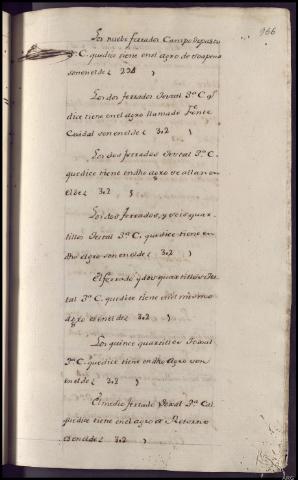 166
Los nuebe ferrados Campo de pasto
3ª C. que dice tiene en el agro de
son en el de ( 231 )
Los dos ferrados Deveal 3ª C. qᵉ
dice tiene en el agro llamado Fente
Casdal son en el de ( 3,2 )
Los dos ferrados Deveal 3ª C.
que dice tiene en dho agro se allan en
el de ( 3,2 )
Los dos ferrados, y seis quar-
tillos Deveal 3ª C. que dice tiene en
dho Agro son en el de ( 3,2 )
El ferrado y dos quartillos De-
tal 3ª C. que dice tiene en el mismo
agro es en el de ( 3,2 )
Los quince quartillos
3ª C. que dice tiene en dho Agro son
en el de ( 3,2 )
El medio ferrado Deveal 3ª Cal
que dice tiene en el agro de Retorno
es en el de ( 3,2 )